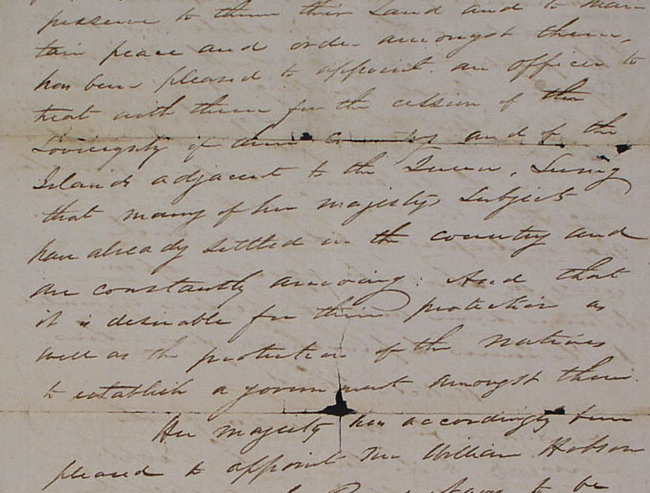 preserve to them their Land and to main
tain peace and order amongst them,
has been pleased to appoint an officer to
treat with them for the cession of the
Soverignty of their and of the
Islands adjacent to the Queen. Seeing
that many of her majestys subjects
have already settled in the country and
are constantly arriving: And that
it is desirable for their protection as
well as the protection of the natives
to establish a government amongst them.
Her majesty has accordingly been
pleased to appoint me William Hobson
to be